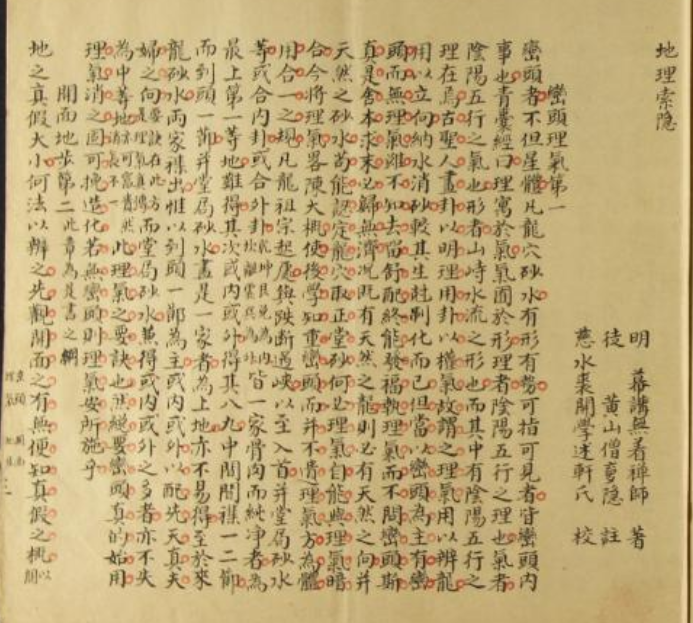 地理索隐
明 幕講無着禅師 著
徒 黄山僧 隐 註
慈水裘開學述軒氏 校
巒頭理氣第一
巒頭者不但星體凡龍穴砂水有形有勢可指可見者皆巒頭内
事也青囊經曰理寓於氣氣囿於形理者陰陽五行之理也氣者
陰陽五行之氣也形者山峙水流之形也而其中有陰陽五行之
理在焉古聖人畫卦以明理用卦以權氣故謂之理氣用以辨龍
用以立向納水消砂較其生尅制化而已但當以巒頭為主有巒
頭而無理氣雖不知去留舒配終能發福執理氣而不問巒頭斯
真是舍本求末必歸無濟况既有天然之龍則必有天然之向并
天然之砂水苟能認定龍穴取正堂砂何必理氣自能與理氣暗
合今將理氣畧陳大概使後學知重巒頭而并不遺理氣方為體
用合一之規凡龍祖宗起處與跌斷過峡以至入首并堂局砂水
等或合内卦或合外卦乾坤艮兑為内坎離震巽為外皆一家骨肉而純净者為
最上第一等地難得其次或内或外得其八九中間間襍一二節
而到頭一節并堂局砂水盡是一家者為上地亦不易得至於來
龍砂水两家襍出惟以到頭一節為主或内或外以配先天真夫
婦之向 而堂局砂水兼得或内或外之多者亦不失
為中等地 此理氣之要訣也然総要巒頭真的始用
理氣消之固可挽造化若無巒頭則理氣安所施乎
開面地步第二此章為是書之綱
地之真假大小何法以辨之先觀開面之有無便知真假之概